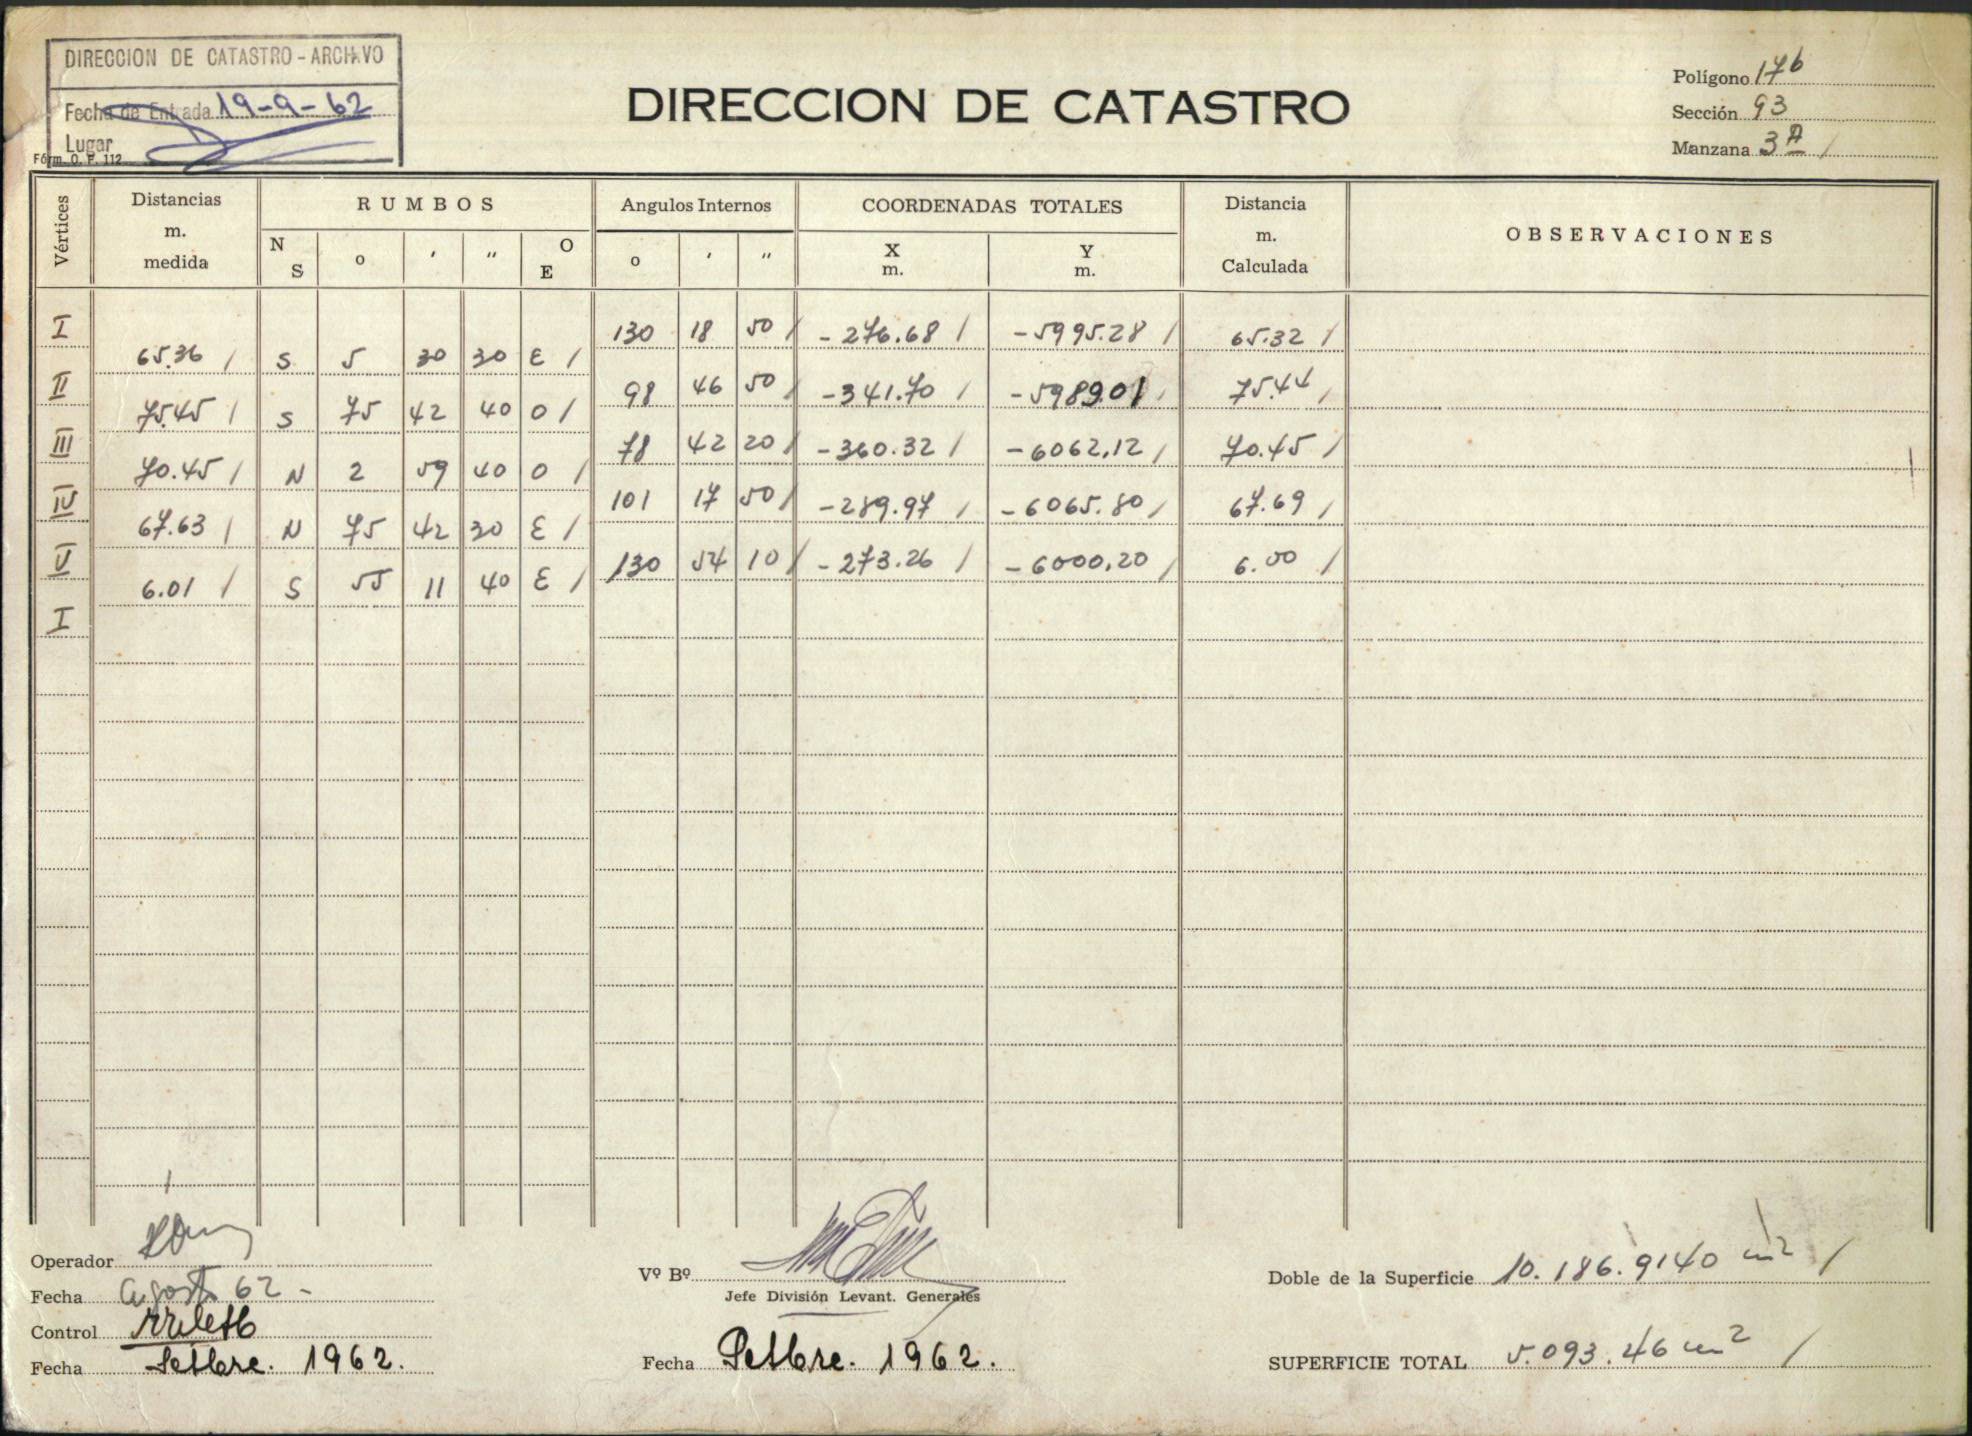 DIRECCION DE CATASTRO - ARCHIVO
Fecha de Entrada 19-9-62
Lugar
Fórm. O. P. 112
DIRECCION DE CATASTRO
Polígono 176
Sección 93
Manzana 3A /
Vértices
Distancias m. medida
RUMBOS
N S o ' " O E
Angulos Internos
o ' "
COORDENADAS TOTALES
X m. Y m.
Distancia m. Calculada
OBSERVACIONES
I 130 18 50 / -276.68 / -5995.28 / 65.32 /
65.36 / S 5 30 30 E /
II 98 46 50 / -341.70 / -5989.01 / 75.44 /
75.45 / S 75 42 40 O /
III 78 42 20 / -360.32 / -6062.12 / 70.45 /
70.45 / N 2 59 40 O /
IV 101 17 50 / -289.97 / -6065.80 / 67.69 /
67.63 / N 75 42 30 E /
V 130 54 10 / -273.26 / -6000.20 / 6.00 /
6.01 / S 55 11 40 E /
I
Operador
Fecha agosto 62 -
Control
Fecha Setbre. 1962.
Vº Bº
Jefe División Levant. Generales
Fecha Setbre. 1962.
Doble de la Superficie 10.186.9140 m2 /
SUPERFICIE TOTAL 5.093.46 m2 /